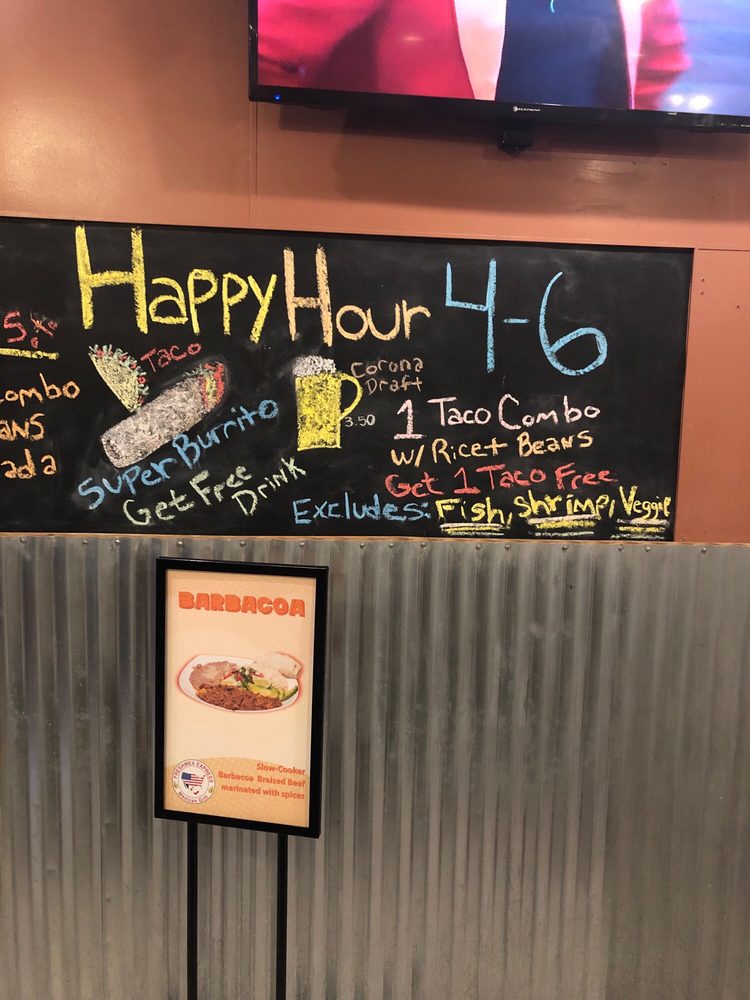 ELEMENT
Happy Hour 4-6
Taco
Super Burrito
Get Free
Drink
Corona
Draft
3.50
1 Taco Combo
w/ Rice + Beans
Get 1 Taco Free
Excludes: Fish, Shrimp, Veggie
5
ombo
ans
ada
BARBACOA
FRESHMEX EXPRESS
Mexican Grill
Slow-Cooker
Barbacoa Braised Beef
marinated with spices